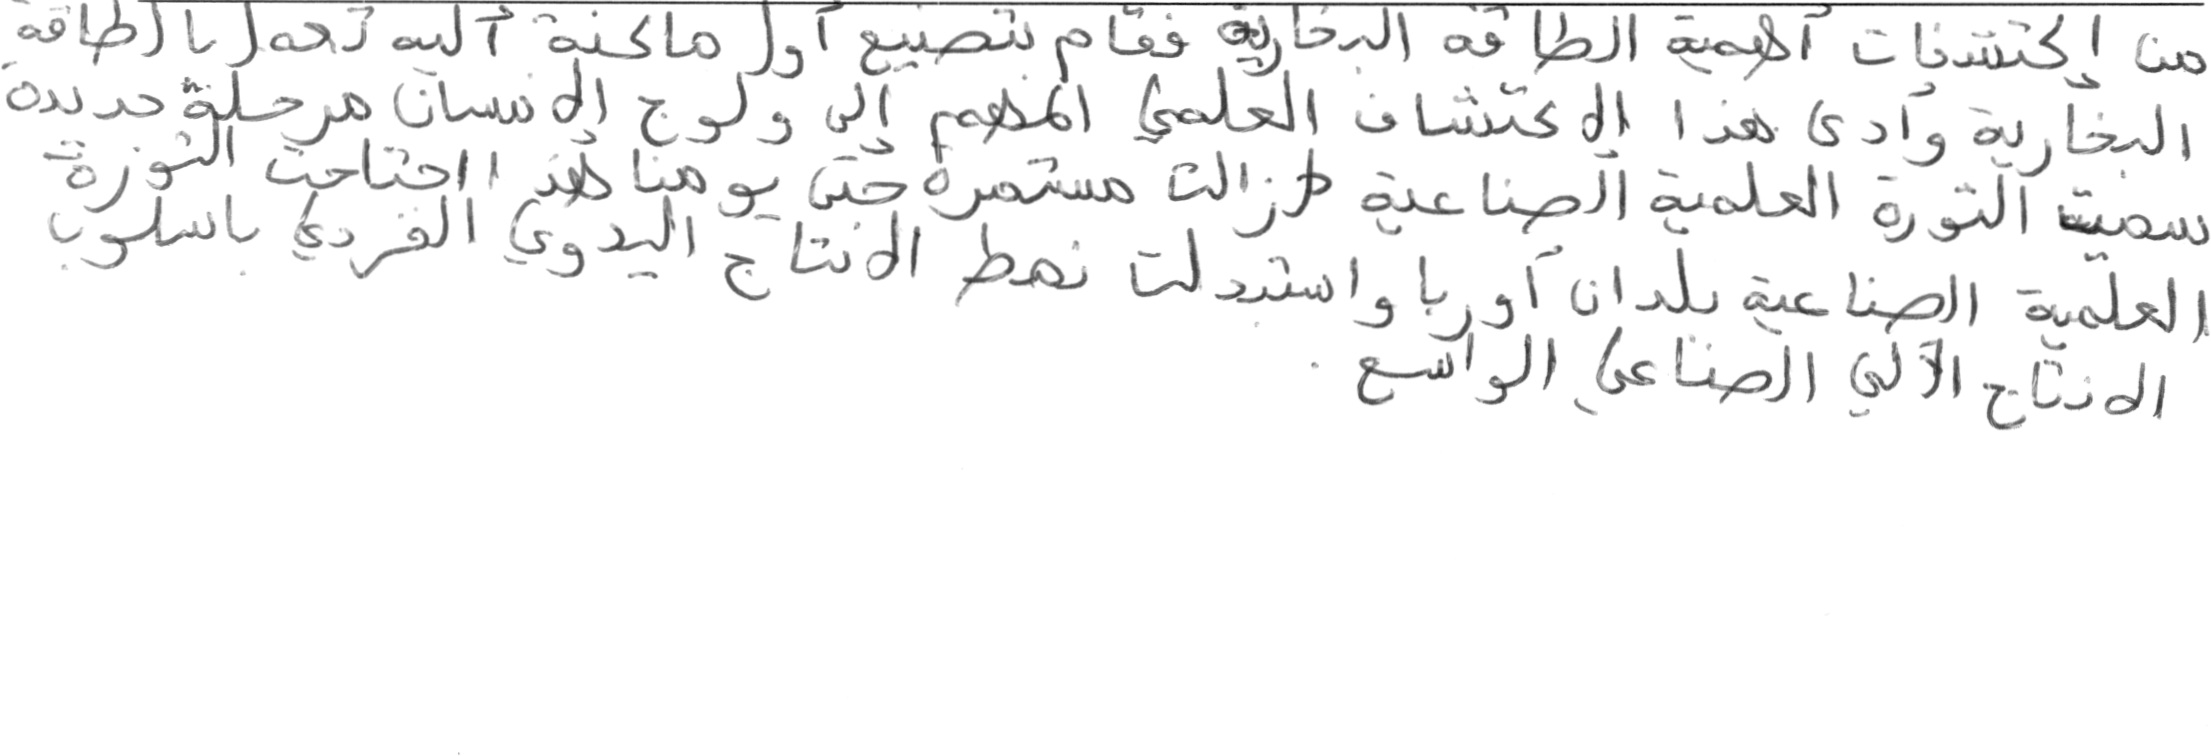 من إكتشفات أهمية الطاقة البخارية فقام بتصنيع أول ماكنة آليه تعمل بالطاقة
البخارية وأدى هذا الاكتشاف العلمي المهم إلى ولوج الإنسان مرحلة جديدة
سميت الثورة العلمية الصناعية لازالت مستمرة حتى يومنا هذا اجتاحت الثورة
العلمية الصناعية بلدان أوربا واستبدلت نمط الانتاج اليدوي الفردي باسلوب
الانتاج الآلي الصناعي الواسع .